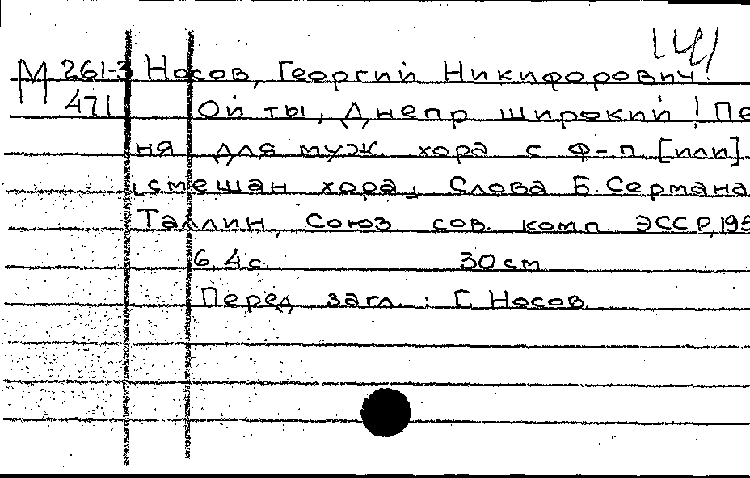 М 261-3 Носов, Георгий Никифорович.
471 Ой ты, Днепр широкий! Пе
ня для муж хора с ф-п. [или]
смешан хора. Слова Б. Сермана
Таллин, Союз сов. комп ЭССР, 195
6. 4с. 30 см
Перед загл.: Г. Носов